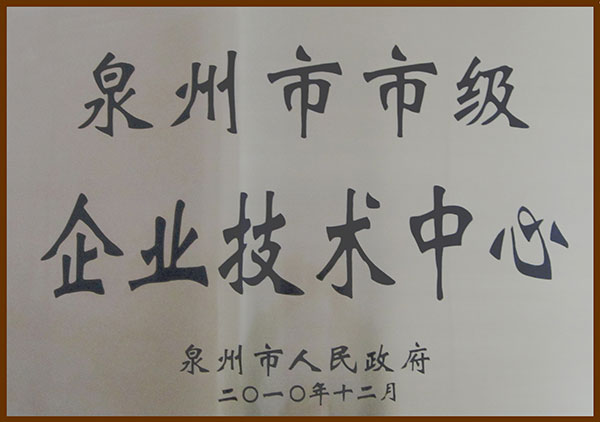 泉州市市级
企业技术中心
泉州市人民政府
二〇一〇年十二月